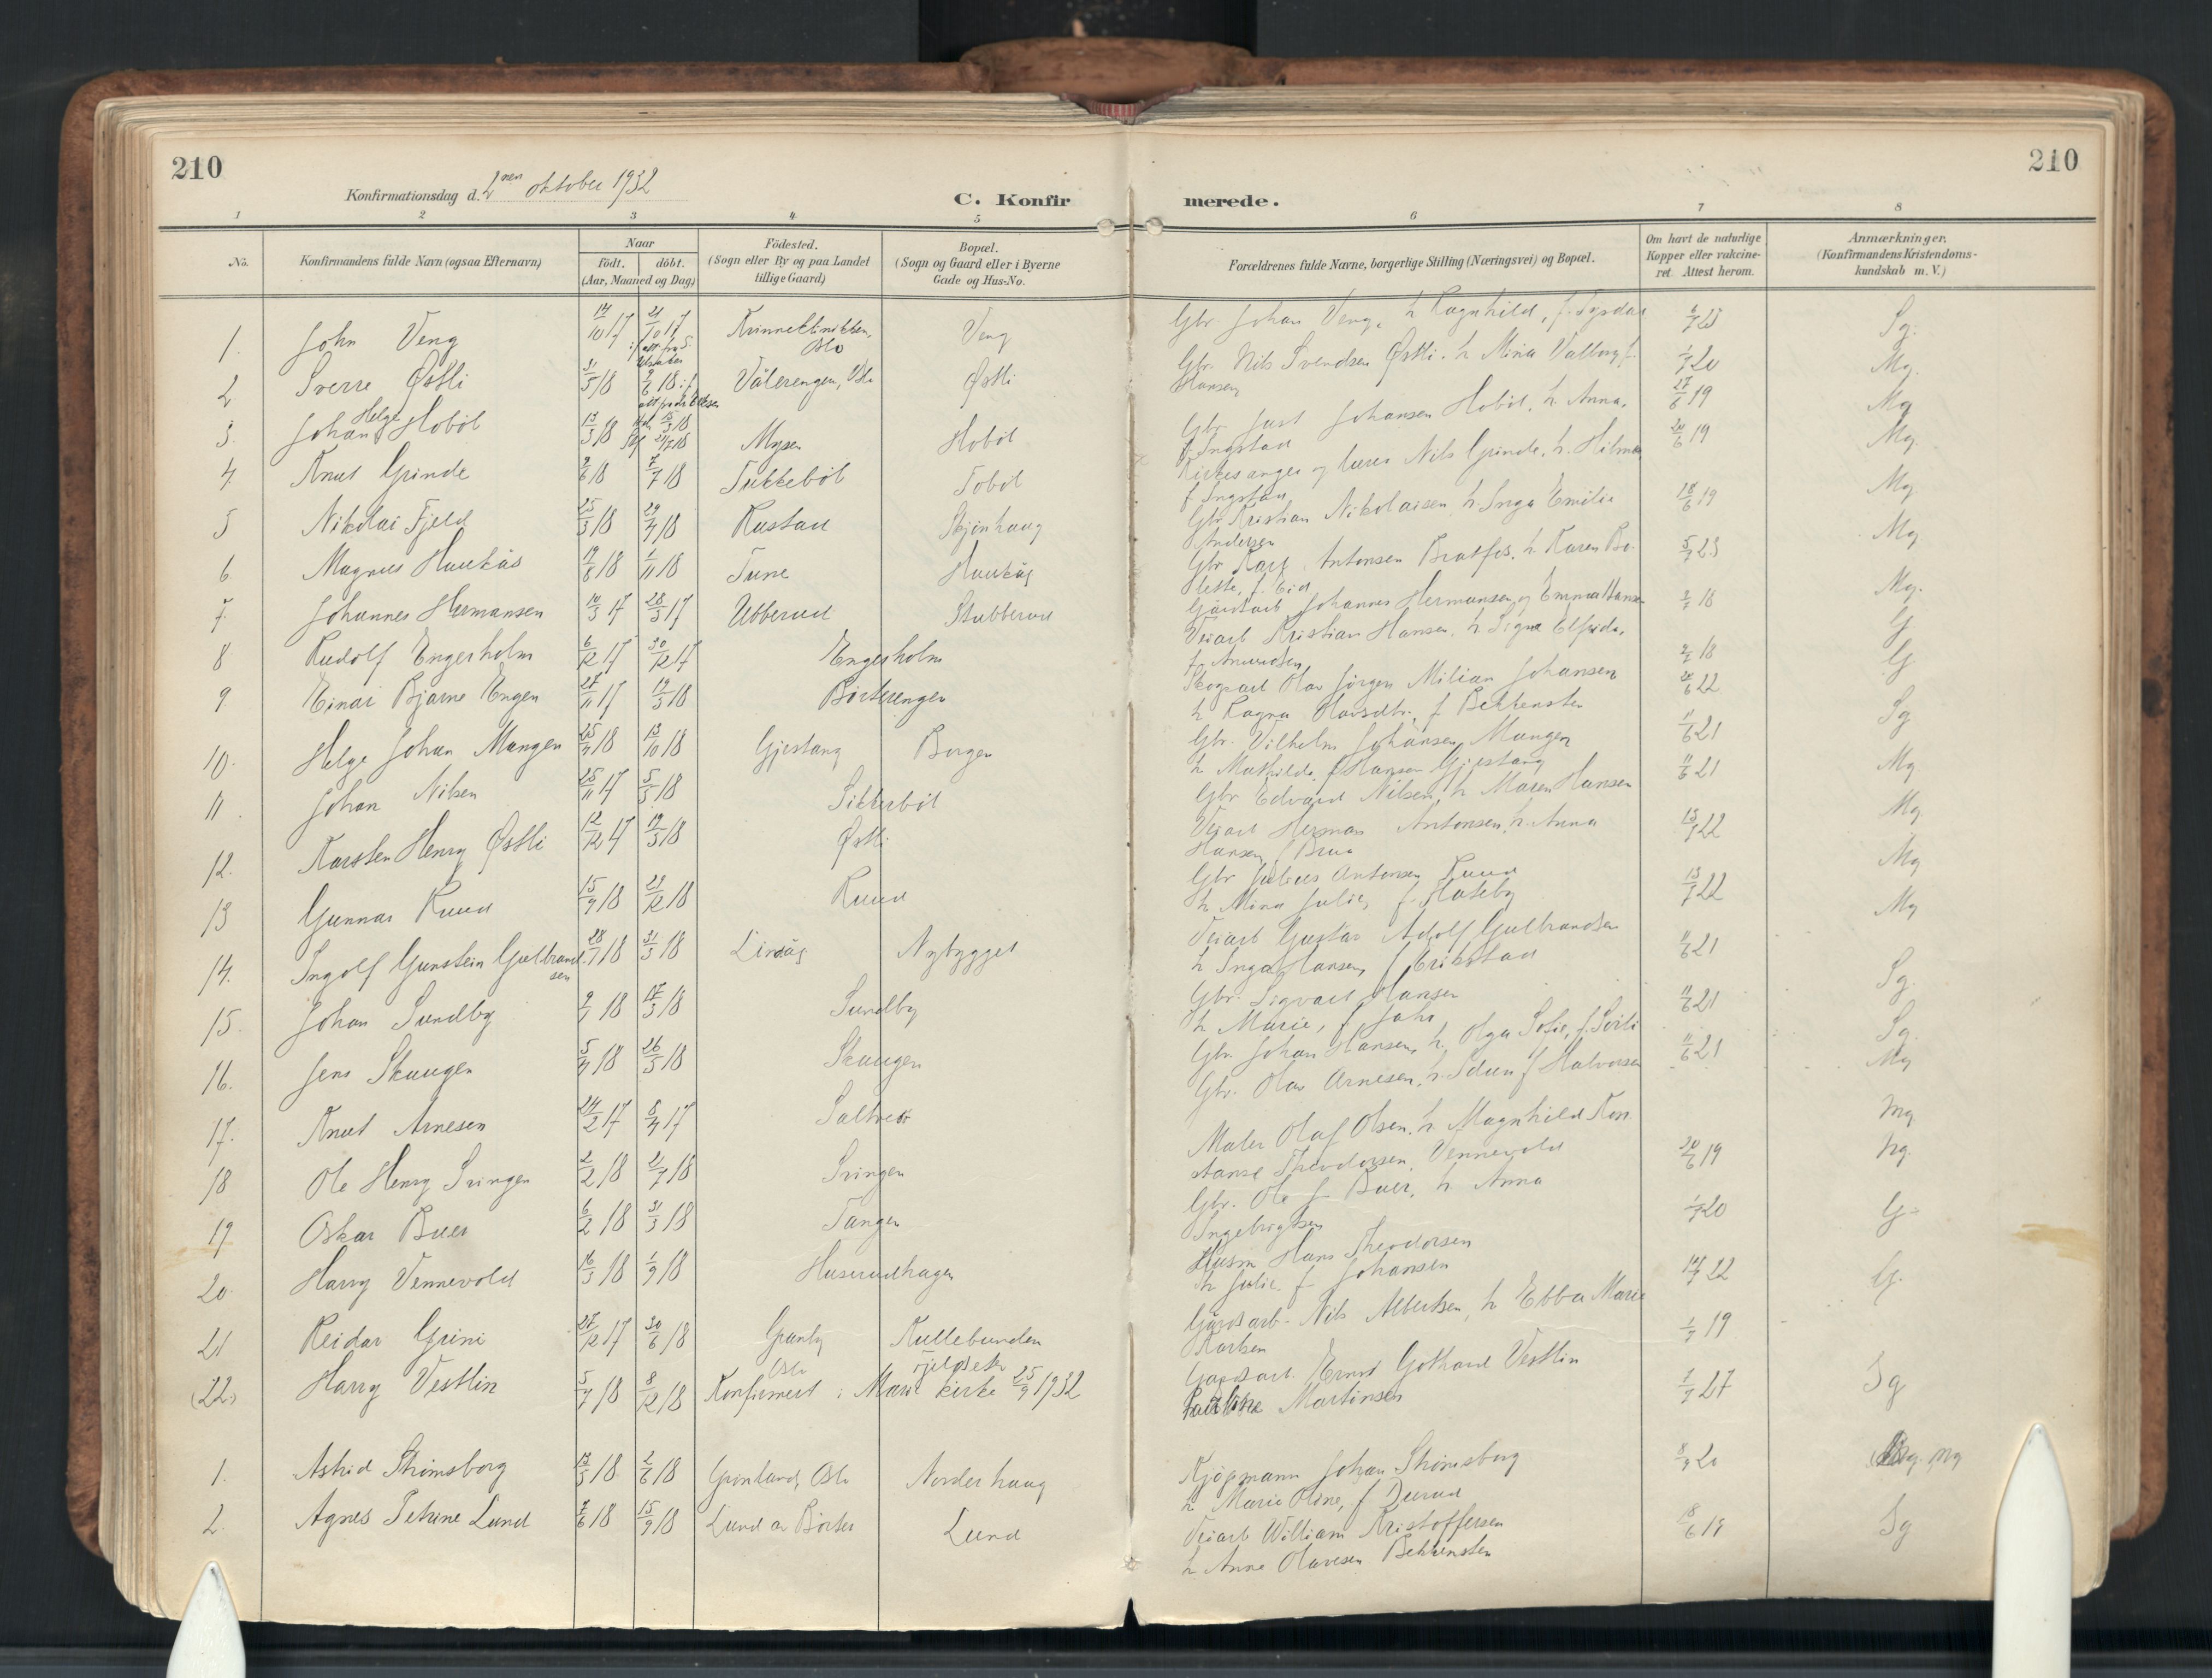 210
210
Konfirmationsdag d. 2nen oktober 1932
C. Konfir merede.
1 2 3 4 5 6 7 8
No.
Konfirmandens fulde Navn (ogsaa Efternavn)
Naar
födt. döbt.
(Aar, Maaned og Dag)
Födested.
(Sogn eller By og paa Landet
tillige Gaard)
Bopæl.
(Sogn og Gaard eller i Byerne
Gade og Hus-No.
Forældrenes fulde Navne, borgerlige Stilling (Næringsvei) og Bopæl.
Om havt de naturlige
Kopper eller vakcine-
ret Attest herom.
Anmærkninger.
(Konfirmandens Kristendoms-
kundskab m. V.)
1. John Veng 14/10 17 21/10 17 Oslo Veng Gbr Johan Veng, h. Ragnhild, f. Sg.
2 Sverre Østli 31/5 18 9/6 18 Vålerengen, Oslo Østli Gbr. Nils Svendsen Østli. h Mina Valborg f. 1/7 20 Mg.
Hansen
3. Johan Helge Hobøl 13/3 18 Mysen Hobøl Gbr. Just Johansen Hobøl, h. Anna, 27/6 19 Mg
f. Ingstad
4 Knut Grinde 9/6 18 7/7 18 Tukkebøl Tobøl Kirkesanger og lærer Nils Grinde, h. Hilma 20/6 19 Mg
f Ingstad
5 Nikolai Fjeld 25/3 18 29/4 18 Rustad Skjønhaug Gbr Kristian Nikolaisen, h Inga Emilie 18/6 19 Mg
Andersen
6. Magnus Haukås 19/8 18 1/11 18 Tune Haukås Gbr Karl Antonsen Bratfos, h. Karen Bo- 5/7 23 Mg
lette, f. Eid
7. Johannes Hermansen 10/3 17 28/5 17 Ubberud Stubberud Gårdsarb Johannes Hermansen og Emma Hansen 2/7 18 Mg.
8 Rudolf Engerholm 6/12 17 30/12 17 Engerholm Veiarb Kristian Hansen. h. Signe Elfrida, 2/7 18 G
f. Amundsen
9 Einar Bjarne Engen 27/11 17 19/5 18 Børterengen Skogsarb Olav Jørgen Milian Johansen 22 G
h Ragna Olavsdtr. f Bekkensten
10. Helge Johan Mangen 25/4 18 13/10 18 Gjestang Borgen Gbr. Vilhelm Johansen Mangen 11/6 21 Sg
h. Mathilde, f Hansen Gjestang
11. Johan Nilsen 25/11 17 5/5 18 Sikkerbøl Gbr Edvard Nilsen, h Maren Hansen 11/6 21 Mg
12. Karsten Henry Østli 12/12 17 19/5 18 Østli Veiarb Herman Antonsen, h. Anna 13/7 22 Mg
Hansen f Brua
13 Gunnar Ruud 15/9 18 29/12 18 Ruud Gbr Julius Antonsen Ruud 13/7 22 Mg
h. Mina Julie, f. Slateby
14. Ingolf Gunstein Gulbrand- 28/1 18 31/3 18 Linås Nybygget Veiarb Gustav Adolf Gulbrandsen 11/6 21 Mg
sen
h Inga Hansen, f Erikstad
15. Johan Sundby 9/4 18 17/3 18 Sundby Gbr. Sigvart Hansen 11/6 21 Sg.
h Marie, f Jahr
16. Jens Skaugen 5/4 18 26/5 18 Skaugen Gbr. Johan Hansen, h. Olga Sofie, f. Sørli 11/6 21 Sg.
17. Knut Arnesen 24/2 17 8/4 17 Gbr. Olav Arnesen, h. f Halvorsen Mg
18 Ole Henry Svingen 2/2 18 21/7 18 Svingen Maler Olaf Olsen. h. Magnhild Kon- 20/6 19 Mg
stanse Theodorsen, Vennevold
19 Oskar Buer 6/2 18 31/3 18 Tangen Gbr. Ole J Buer, h. Anna 1/7 20 Ng.
Ingebrigtsen
20 Harry Vennevold 16/3 18 1/9 18 Husrudhagen Husm Hans Theodorsen 14/7 22 G
h Julie f. Johansen
21 Reidar Grini 27/12 17 30/6 18 Granly Kullebunden Gårdsarb. Nils Albertsen, h Ebba Marie 1/7 19 G.
Karlsen
Oslo Fjeldseter
(22.) Harry Vestlin 5/7 18 8/12 18 Konfirmert i Maria kirke 25/9 1932 Gaardsarb. Ernst Gothard Vestlin 7/7 27 Sg
Martinsen
1. Astrid Strømsborg 13/5 18 2/6 18 Grønland, Oslo Norderhaug Kjøpmann Johan Strømsborg 8/9 20 Mg
h Marie Oline, f Durud
2. Agnes Petrine Lund 7/6 18 15/9 18 Lund av Børter Lund Veiarb William Kristoffersen 18/6 19 Sg
h Anna Olavesen Bekkensten